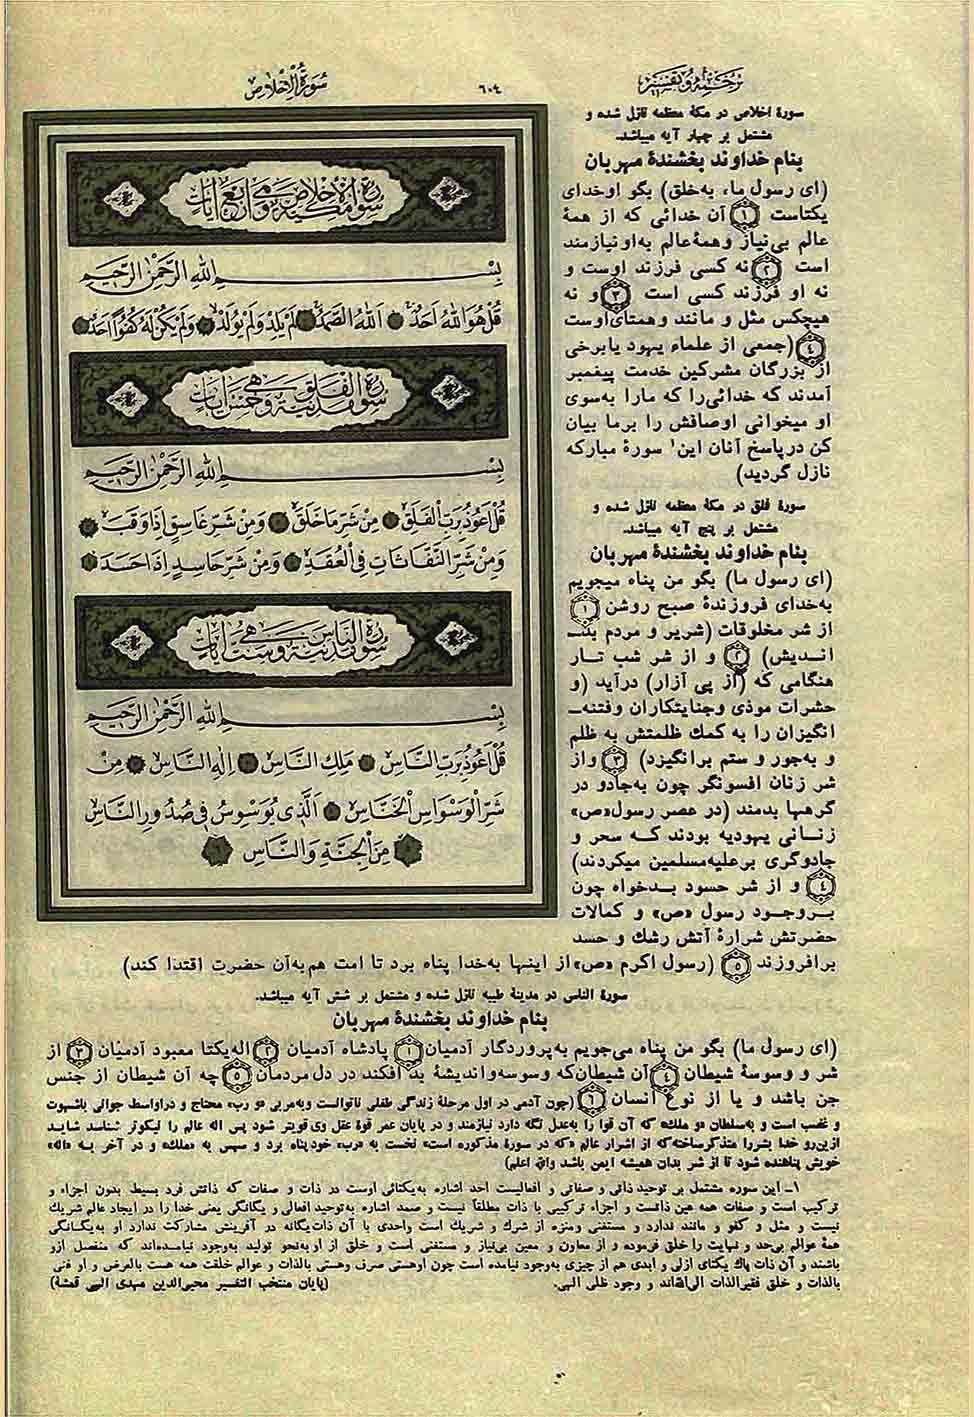 ترجمه و تفسیر
۶۰۴
سورة الاخلاص
سورهٔ اخلاص در مکهٔ معظمه نازل شده و
مشتمل بر چهار آیه میباشد.
بنام خداوند بخشندهٔ مهربان
(ای رسول ما، به‌خلق) بگو اوخدای
یکتاست ۱ آن خدائی که از همهٔ
عالم بی‌نیاز و همهٔ عالم به‌او نیازمند
است ۲ نه کسی فرزند اوست و
نه او فرزند کسی است ۳ و نه
هیچکس مثل و مانند و همتای اوست
۴ (جمعی از علماء یهود یا برخی
از بزرگان مشرکین خدمت پیغمبر
آمدند که خدائی را که مارا به‌سوی
او میخوانی اوصافش را برما بیان
کن در پاسخ آنان این۱ سورهٔ مبارکه
نازل گردید)
سورهٔ فلق در مکهٔ معظمه نازل شده و
مشتمل بر پنج آیه میباشد.
بنام خداوند بخشندهٔ مهربان
(ای رسول ما) بگو من پناه میجویم
به‌خدای فروزندهٔ صبح روشن ۱
از شر مخلوقات (شریر و مردم بد‌ـ
اندیش) ۲ و از شر شب تار
هنگامی که (از پی آزار) درآید (و
حشرات موذی و جنایتکاران و فتنه‌ـ
انگیزان را به کمك ظلمتش به ظلم
و به‌جور و ستم برانگیزد) ۳ و از
شر زنان افسونگر چون به‌جادو در
گرهها بدمند (در عصر رسول «ص»
زنانی یهودیه بودند که سحر و
جادوگری بر علیه مسلمین میکردند)
۴ و از شر حسود بدخواه چون
بر وجود رسول «ص» و کمالات
حضرتش شرارهٔ آتش رشك و حسد
برافروزند ۵ (رسول اکرم «ص» از اینها به‌خدا پناه برد تا امت هم به‌آن حضرت اقتدا کند)
سورة الاخلاص مکیة و هی اربع آیات
بسم الله الرحمن الرحیم
قُلْ هُوَ اللهُ اَحَدٌ اَللهُ الصَّمَدُ لَمْ یَلِدْ وَ لَمْ یُولَدْ وَ لَمْ یَکُنْ لَهُ کُفُوًا اَحَدٌ
سورة الفلق مدنیة و هی خمس آیات
بسم الله الرحمن الرحیم
قُلْ اَعُوذُ بِرَبِّ الْفَلَقِ مِنْ شَرِّ مَا خَلَقَ وَ مِنْ شَرِّ غَاسِقٍ اِذَا وَقَبَ
وَ مِنْ شَرِّ النَّفَّاثَاتِ فِی الْعُقَدِ وَ مِنْ شَرِّ حَاسِدٍ اِذَا حَسَدَ
سورة الناس مدنیة و هی ست آیات
بسم الله الرحمن الرحیم
قُلْ اَعُوذُ بِرَبِّ النَّاسِ مَلِكِ النَّاسِ اِلٰهِ النَّاسِ مِنْ
شَرِّ الْوَسْوَاسِ الْخَنَّاسِ اَلَّذِی یُوَسْوِسُ فِی صُدُورِ النَّاسِ
مِنَ الْجِنَّةِ وَ النَّاسِ
سورهٔ الناس در مدینهٔ طیبه نازل شده و مشتمل بر شش آیه میباشد.
بنام خداوند بخشندهٔ مهربان
(ای رسول ما) بگو من پناه می‌جویم به‌پروردگار آدمیان ۱ پادشاه آدمیان ۲ اله یکتا معبود آدمیان ۳ از
شر و وسوسهٔ شیطان ۴ آن شیطان که وسوسه و اندیشهٔ بد افکند در دل مردمان ۵ چه آن شیطان از جنس
جن باشد و یا از نوع انسان ۶ (چون آدمی در اول مرحلهٔ زندگی طفلی ناتوانست و به‌مربی «و رب» محتاج و در اواسط جوانی باشهوت
و غضب است و به‌سلطان «و ملك» که آن قوا را به‌عدل نگه دارد نیازمند و در پایان عمر قوهٔ عقل وی قویتر شود پس اله عالم را نیکوتر شناسد شاید
ازین‌رو خدا بشر را متذکر ساخته که از اشرار عالم «که در سورهٔ مذکوره است» نخست به «رب» خود پناه برد و سپس به «ملك» و در آخر به «اله»
خویش پناهنده شود تا از شر بدان همیشه ایمن باشد والله اعلم)
۱ـ این سوره مشتمل بر توحید ذاتی و صفاتی و افعالیست احد اشاره به‌یکتائی اوست در ذات و صفات که ذاتش فرد بسیط بدون اجزاء و
ترکیب است و صفات همه عین ذاتست و اجزاء ترکیبی با ذات مطلقاً نیست و صمد اشاره به‌توحید افعالی و یگانگی یعنی خدا را در ایجاد عالم شریك
نیست و مثل و کفو و مانند ندارد و مستغنی و منزه از شرك و شریك است واحدی با آن ذات یگانه در آفرینش مشارکت ندارد او به‌یگانگی
همهٔ عوالم بی‌حد و نهایت را خلق فرموده و از معاون و معین بی‌نیاز و مستغنی است و خلق از او به‌نحو تولید به‌وجود نیامده‌اند که منفصل ازو
باشند و آن ذات پاك یکتای ازلی و ابدی هم از چیزی به‌وجود نیامده است چون او هستی صرف و هستی بالذات و عوالم خلقت همه هست بالعرض و او غنی
بالذات و خلق فقیر الذات الی‌الله‌اند و وجود ظلی الهی. (پایان منتخب التفسیر محیی‌الدین مهدی الهی قمشهٔ)